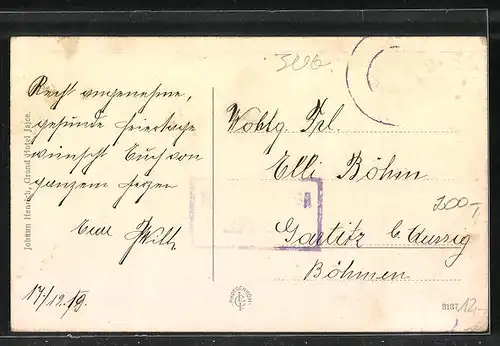 Recht angenehme,
gesunde Feiertage
wünscht Euch von
ganzem Herzen
Eure Willi
17/12.19.
Johann Heurich, Grand Hotel Jajce.
Wohlg. Frl.
Elli Böhm
Gartitz b. Aussig
Böhmen
300.-
3137
12.-